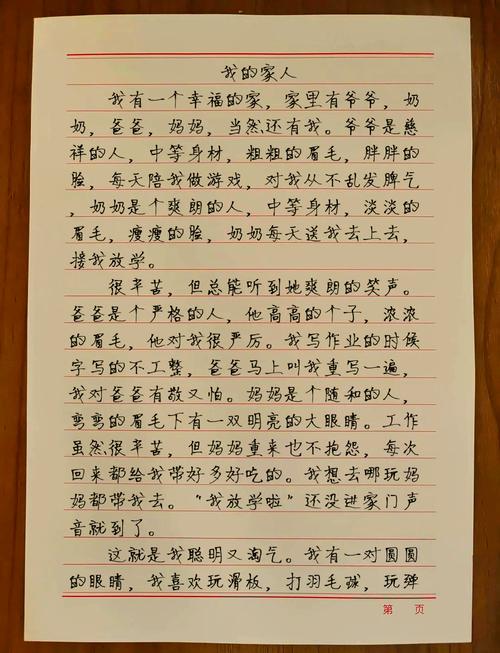 我的家人
我有一个幸福的家，家里有爷爷，奶
奶，爸爸，妈妈，当然还有我。爷爷是慈
祥的人，中等身材，粗粗的眉毛，胖胖的
脸，每天陪我做游戏，对我从不乱发脾气
，奶奶是个爽朗的人，中等身材，淡淡的
眉毛，瘦瘦的脸，奶奶每天送我去上去，
接我放学。
很辛苦，但总能听到她爽朗的笑声。
爸爸是个严格的人，他高高的个子，浓浓
的眉毛，他对我很严厉。我写作业的时候
字写的不工整，爸爸马上叫我重写一遍，
我对爸爸有敬又怕。妈妈是个随和的人，
弯弯的眉毛下有一双明亮的大眼睛。工作
虽然很辛苦，但妈妈重来也不抱怨，每次
回来都给我带好多好吃的。我想去哪玩妈
妈都带我去。“我放学啦”还没进家门声
音就到了。
这就是我聪明又淘气。我有一对圆圆
的眼睛，我喜欢玩滑板，打羽毛球，玩弹
第 页